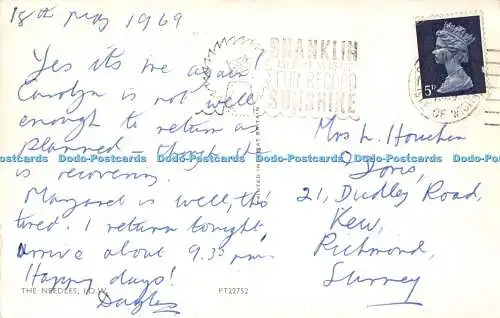 18th May 1969
Yes its me again!
Carolyn is not well
enough to return as
planned - though it
is recovering.
Margaret is well, tho'
tired. I return tonight,
arrive about 9.30 p.m.
Happy days!
Douglas
THE NEEDLES, I.O.W.
PT22752
PRINTED IN GREAT BRITAIN
SHANKLIN
YOUR RECORD
SUNSHINE
5D
OF WIGHT
Mrs L. Houchin
Doris,
21, Dudley Road,
Kew,
Richmond,
Surrey
Dodo-Postcards Dodo-Postcards Dodo-Postcards Dodo-Postcards Dodo-Postcards Dodo-Postcards Dodo-Postcards